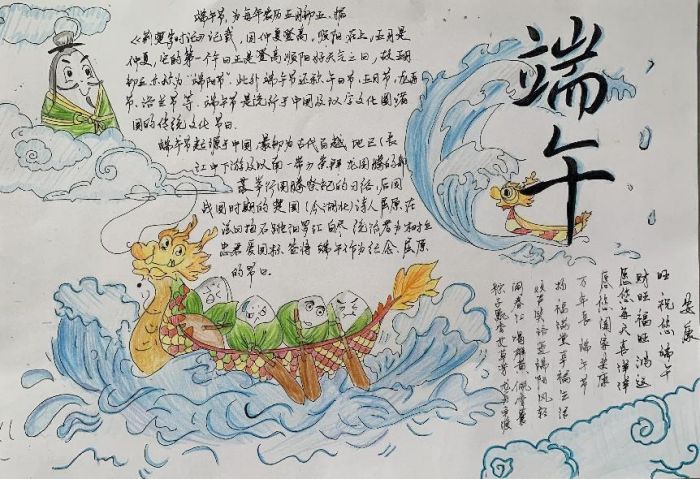 端午
端午节,为每年农历五月初五。据
《荆楚岁时记》记载,因仲夏登高,顺阳在上,五月是
仲夏,它的第一个午日正是登高顺阳好天气之日,故五月
初五亦称为“端阳节”。此外端午节还称午日节、五月节、龙舟
节、浴兰节等。端午节是流行于中国及汉字文化圈诸
国的传统文化节日。
端午节起源于中国,最初为古代百越地区(长
江中下游及以南一带)崇拜龙图腾的部
族举行图腾祭祀的节日,后因
战国时期的楚国(今湖北)诗人屈原在
抱石跳汨罗江自尽,统治者为树立
忠君爱国标签将端午作为纪念屈原
的节日。
安康
旺祝您端午
财旺福旺鸿运
愿您每天喜洋洋
愿您阖家安康
万年长端午节
福满堂享福生活
端阳风轻
佩香囊
粽子飘香艾草芳